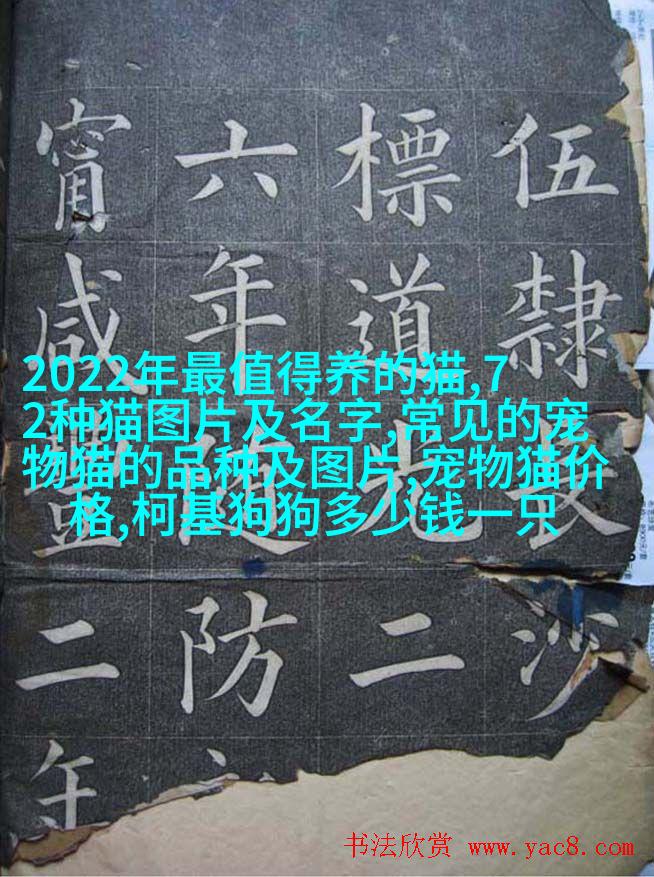 伍隸長沙
標道先二
六年隨防
甯咸豐二年
2022年最值得养的猫,7
2种猫图片及名字,常见的宠
物猫的品种及图片,宠物猫价
格,柯基狗狗多少钱一只
书法欣赏 www.yac8.com